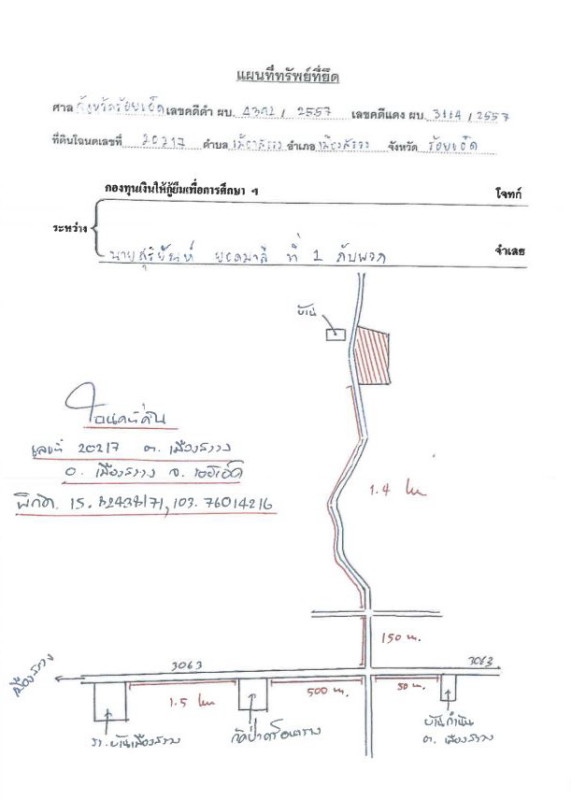 แผนที่ทรัพย์ที่ยึด
ศาล จังหวัดร้อยเอ็ด เลขคดีดำ ผบ. 4392 / 2557 เลขคดีแดง ผบ. 3164 / 2557
ที่ดินโฉนดเลขที่ 20217 ตำบล เมืองสรวง อำเภอ เมืองสรวง จังหวัด ร้อยเอ็ด
กองทุนเงินให้กู้ยืมเพื่อการศึกษา ฯ โจทก์
ระหว่าง
นายสุริยันห์ ที่ 1 กับพวก จำเลย
บ้าน
โฉนดที่ดิน
เลขที่ 20217 ต. เมืองสรวง
อ. เมืองสรวง จ. ร้อยเอ็ด
พิกัด. 103.76014216
1.4 km
150 m.
3063
3063
เมืองสรวง
1.5 km
500 m.
50 m.
รร.บ้านเมืองสรวง
บ้านกำนัน
ต. เมืองสรวง